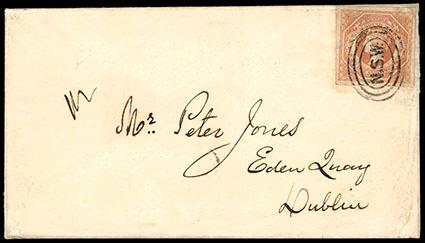 N.S.W.
Mr. Peter Jones
Eden Quay
Dublin